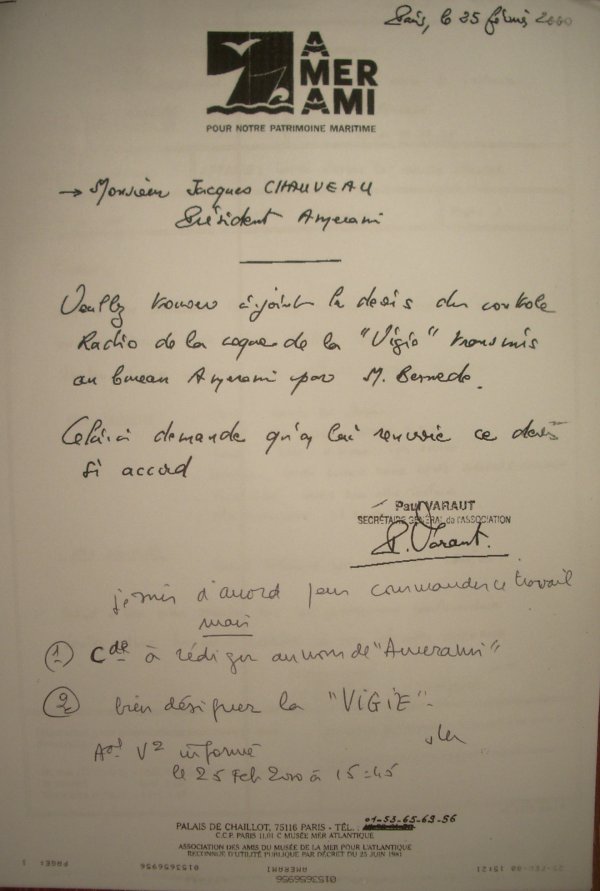 Paris, le 25 février 2000
A
MER
AMI
POUR NOTRE PATRIMOINE MARITIME
→ Monsieur Jacques CHAUVEAU
Président Amerami
Veuillez trouver ci-joint le devis du contrôle
Radio de la coque de la "Vigie" transmis
au bureau Amerami par M. Bernede.
Celui-ci demande qu'on lui renvoie ce devis
si accord
Paul VARAUT
SECRÉTAIRE GÉNÉRAL de l'ASSOCIATION
P. Varaut.
je suis d'accord pour commander ce travail
mais
① Cde à rédiger au nom de "Amerami"
② bien désigner la "VIGIE".
V2 informé
le 25 Feb 2000 à 15:45
PALAIS DE CHAILLOT, 75116 PARIS - TÉL. : 01-53-65-69-56
C.C.P. PARIS 11.01 C MUSÉE MER ATLANTIQUE
ASSOCIATION DES AMIS DU MUSÉE DE LA MER POUR L'ATLANTIQUE
RECONNUE D'UTILITÉ PUBLIQUE PAR DÉCRET DU 25 JUIN 1981
25-FEV-00 15:21 AMERAMI 0153656956 PAGE: 1
0153656956